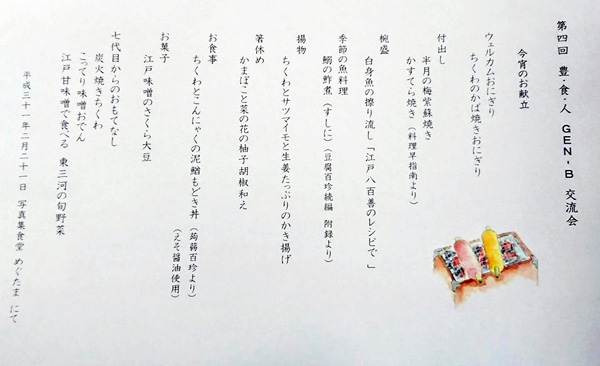 第四回 豊・食・人 GEN-B 交流会
今宵のお献立
ウェルカムおにぎり
ちくわのかば焼きおにぎり
付出し
半月の梅紫蘇焼き
かすてら焼き（料理早指南より）
椀盛
白身魚の擦り流し「江戸八百善のレシピで」
季節の魚料理
鰯の鮓煮（すしに）（豆腐百珍続編 附録より）
揚物
ちくわとサツマイモと生姜たっぷりのかき揚げ
箸休め
かまぼこと菜の花の柚子胡椒和え
お食事
ちくわとこんにゃくの泥鰌もどき丼（蒟蒻百珍より）
（えそ醤油使用）
お菓子
江戸味噌のさくら大豆
七代目からのおもてなし
炭火焼きちくわ
こってり味噌おでん
江戸甘味噌で食べる 東三河の旬野菜
平成三十一年二月二十一日 写真集食堂 めぐたま にて